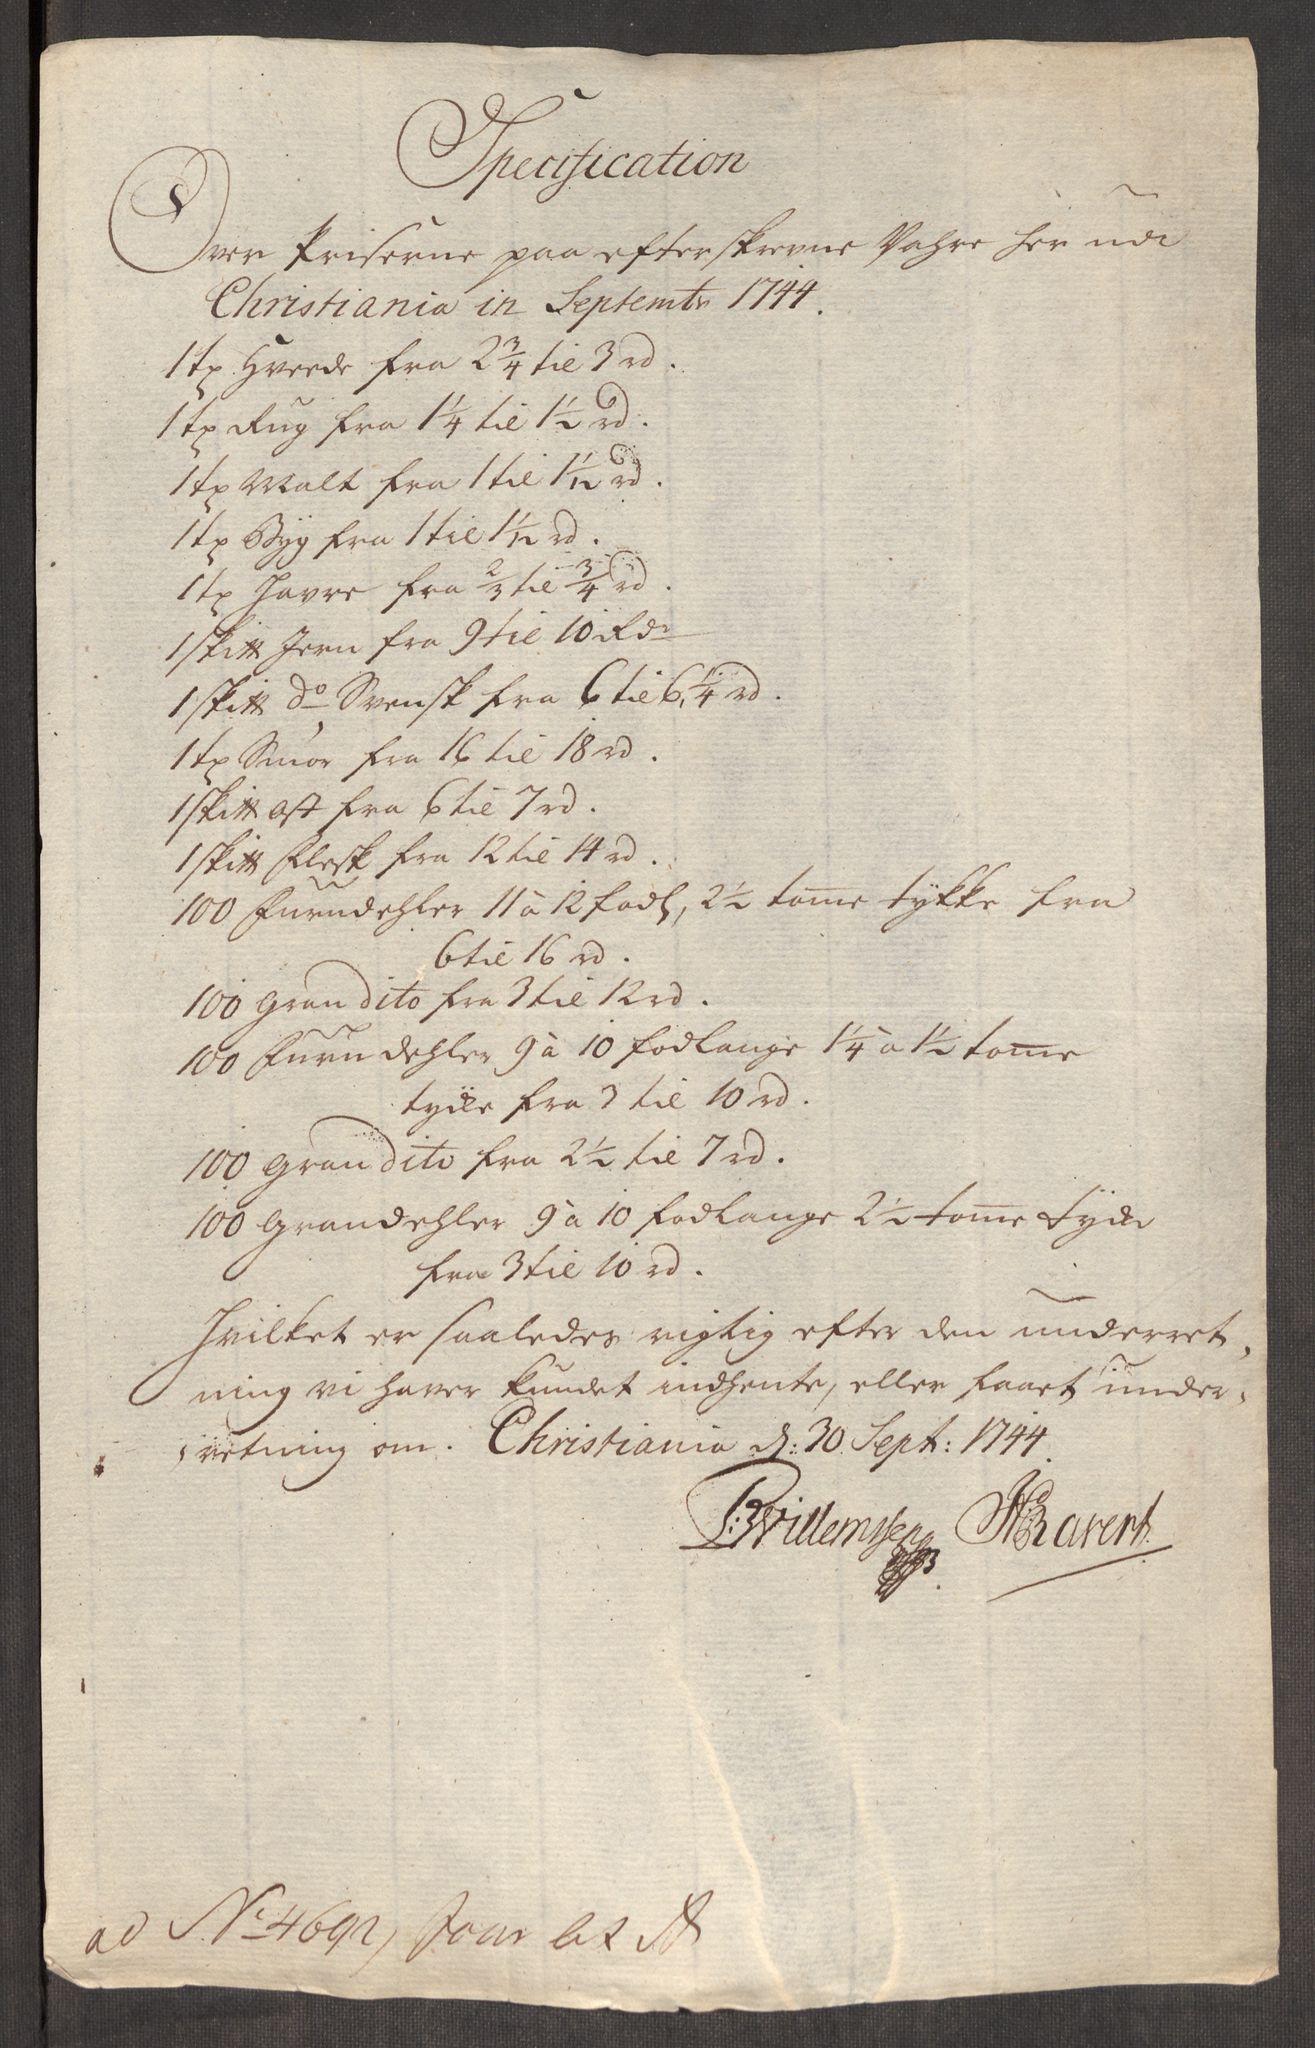 Specification
Over Priserne paa efterskrevne Vahre her udi
Christiania in Septembr 1744.
1 tp Hvede fra 2 3/4 til 3 rd.
1 tp Rug fra 1 1/4 til 1 1/2 rd.
1 tp Malt fra 1 til 1 1/12 rd.
1 tp Byg fra 1 til 1 1/12 rd.
1 tp Havre fra 2/3 til 3/4 rd.
1 skitt Jern fra 9 til 10 Rdr
1 skitt do Svensk fra 6 til 6 1/4 rd.
1 tp Smør fra 16 til 18 rd.
1 skitt ost fra 6 til 7 rd.
1 skitt Flesk fra 12 til 14 rd.
100 Furudehler 11 à 12 fods, 2 1/2 tome tykke fra
6 til 16 rd.
100 gran dito fra 3 til 12 rd.
100 Furudehler 9 à 10 fodlange 1 1/4 à 1 1/2 tome
tycke fra 3 til 10 rd.
100 gran dito fra 2 1/2 til 7 rd.
100 grandehler 9 à 10 fodlange 2 1/2 tome tycke
fra 3 til 10 rd.
Hvilket er saaledes rigtig efter den underret-
ning vi haver kundet indhente, eller faaet under-
retning om. Christiania d: 30. Sept: 1744.
Willemssen
ad No 4692, Jour